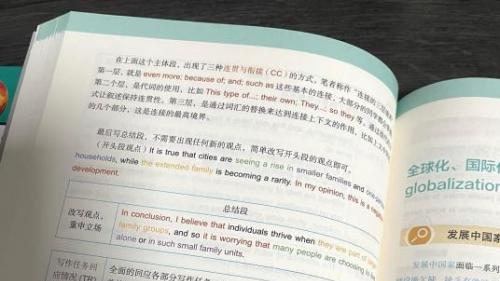 在上面这个主体段，出现了三种连贯与衔接（CC）的方式，笔者称作“连接的三
第一层，就是even more; because of; and; such as这些基本的连接，大部分的同学都
第二个层，是代词的使用，比如This type of...; their own; They...; so they等，通过
式让叙述保持连贯性。第三层，是通过词汇的替换来达到连接上下文的作用，比如上文
的几个部分，这是连接的最高境界。
最后写总结段，不需要出现任何新的观点，简单改写开头段的观点即可。
（开头段观点）It is true that cities are seeing a rise in smaller families and one-person
households, while the extended family is becoming a rarity. In my opinion, this is a negative
development.
总结段
改写观点，
重申立场
In conclusion, I believe that individuals thrive when they are part of large
family groups, and so it is worrying that many people are choosing to live
alone or in such small family units.
写作任务回
应情况（TR）
全面的回应各部分写作任务
全球化、国际化
globalization
发展中国家
发展中国家面临一系列